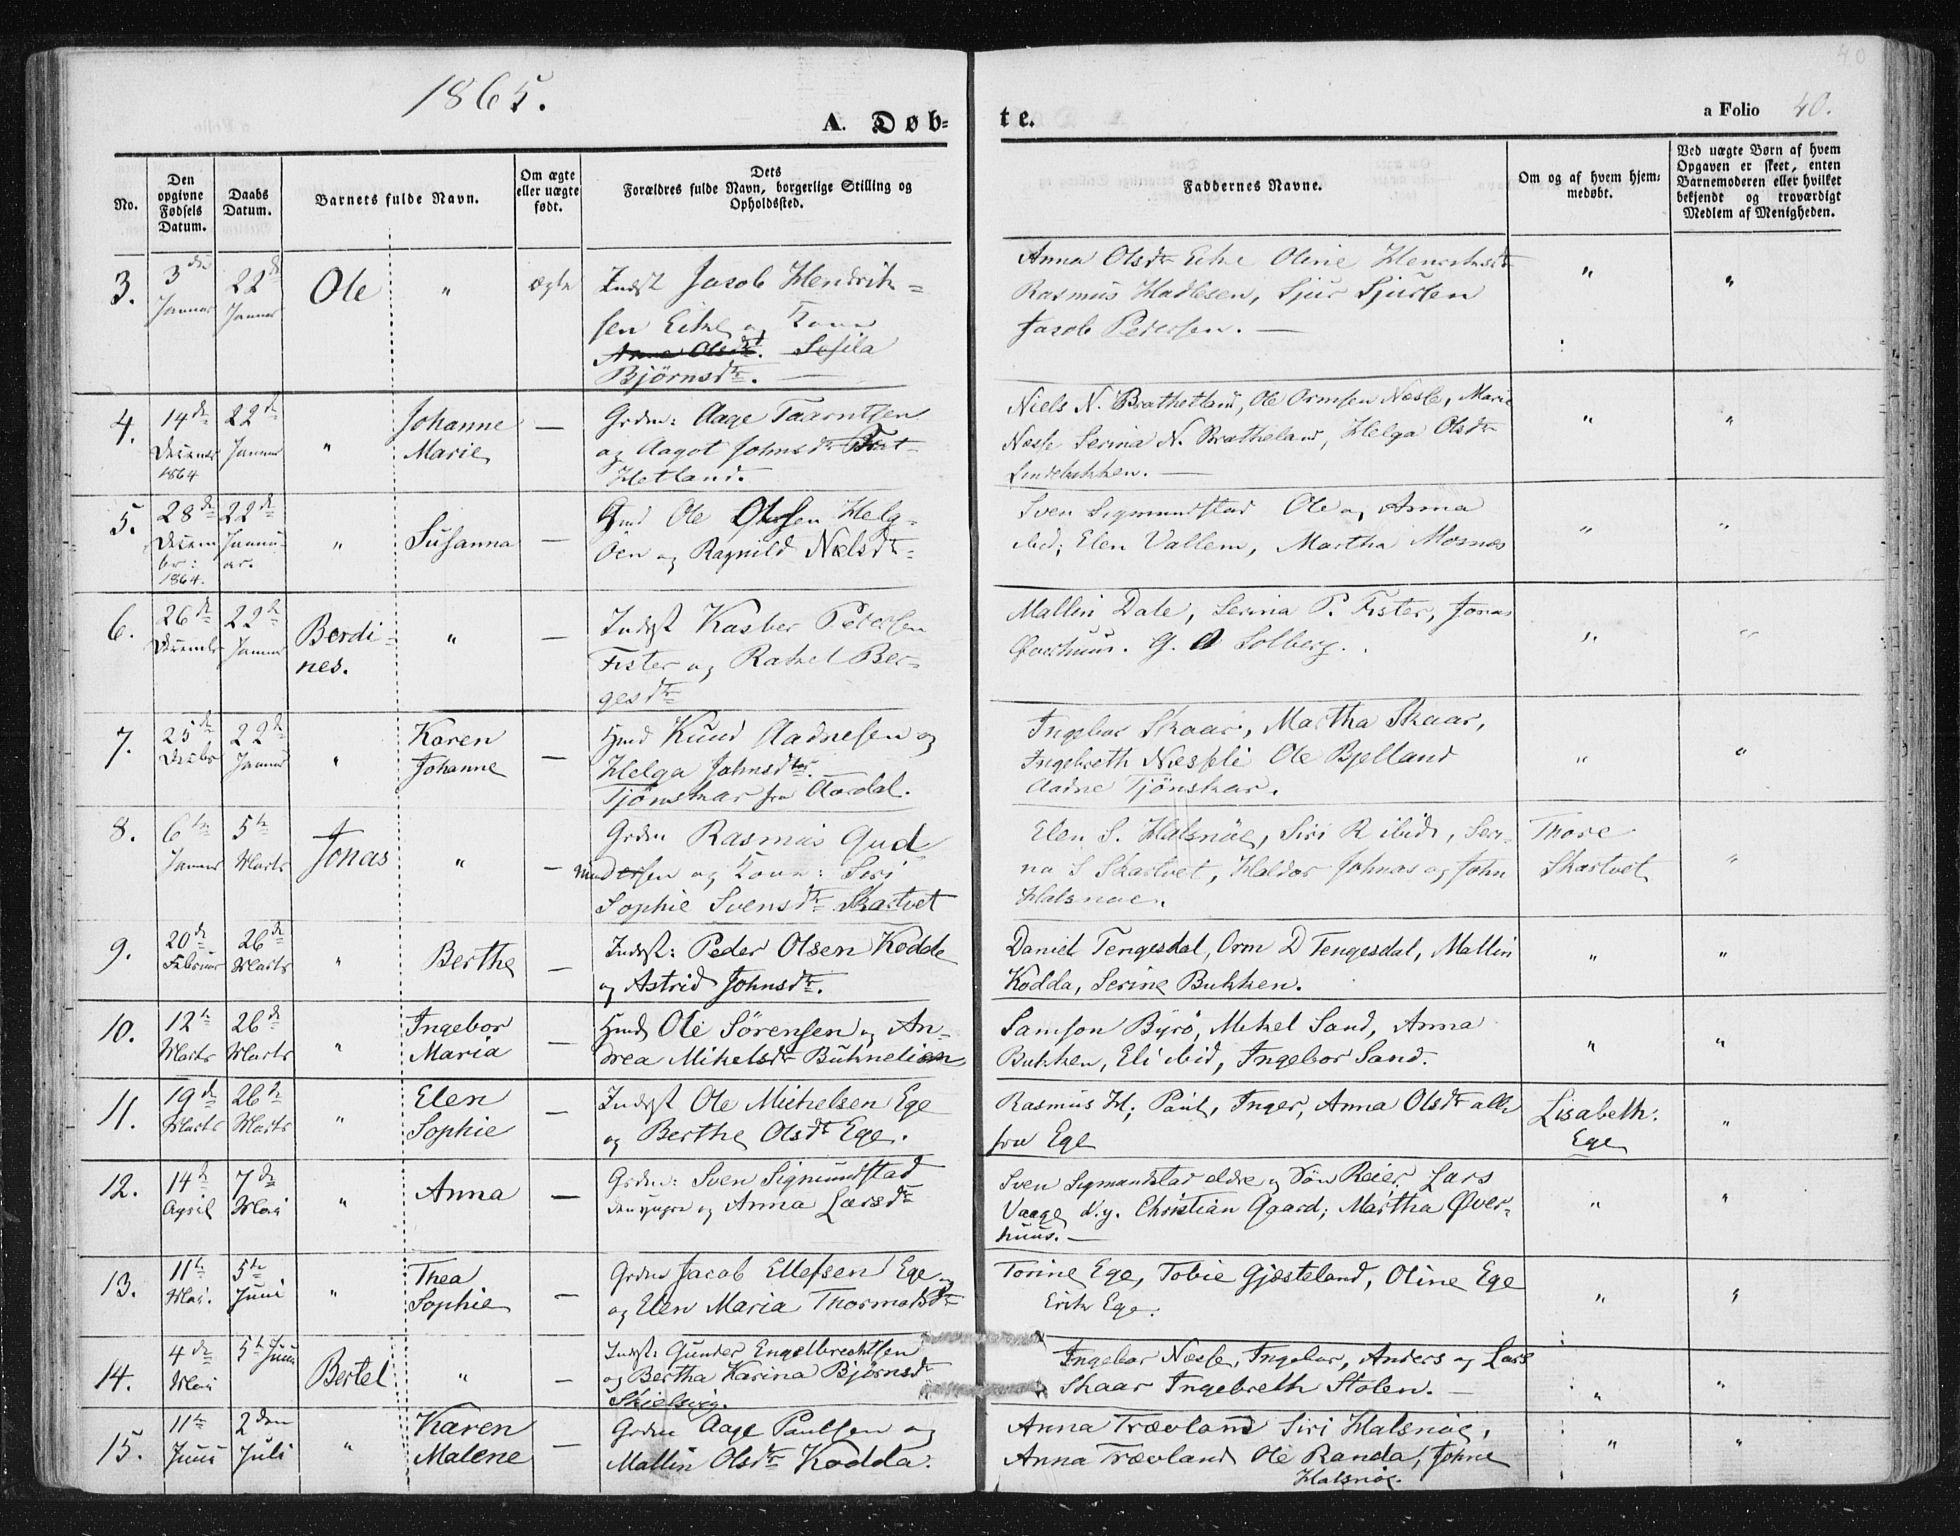 1865.
A. Døb-
te.
a Folio 40.
40
No.
Den opgivne Fødsels Datum.
Daabs Datum.
Barnets fulde Navn.
Om ægte eller uægte født.
Dets Forældres fulde Navn, borgerlige Stilling og Opholdssted.
Faddernes Navne.
Om og af hvem hjemmedøbt.
Ved uægte Børn af hvem Opgaven er skeet, enten Barnemoderen eller hvilket bekjendt og troværdigt Medlem af Menigheden.
3. 3die Januar 22de Januar Ole " ægte
Indst Jacob Hendrik=
sen Eike og Kone
Anna Olsdtr. Sesila
Björnsdtr. —
Anna Olsdtr Eike Oline Henriksdtr
Rasmus Hadlesen, Sjur Sjursen
Jacob Pedersen. —
" "
4. 14de Decemer 1864 22de Januar " Johanne Marie —
Grdm: Aage Taarntsen
og Aagot Johnsdtr Brat-
Hetland.
Niels N. Brathetland, Ole Ormsen Nesse, Marie
Nesse Serina N. Bratheland, Helga Olsdtr
Lindebakken. —
" "
5. 28de Decembr: 1864. 22de Januar. " Susanna —
Hmd Ole Olsen Helg-
öen og Ragnild Nælsdtr.
Sven Sigmundstad Ole og Anna
ibid; Elen Vallem, Martha Mosnes
" "
6. 26de Decembr 22de Januar Berdines. " —
Indst Kasber Pedersen
Fister og Rakel Ber-
gesdtr
Mallin Dale, Serina P. Fister, Jonas
Øverhuus. G. A Solberg.
" "
7. 25de Decbr 22de Januar " Karen Johanne —
Hmd Knud Aadnesen og
Helga Johnsdtr.
Tjönskar fra Aardal.
Ingebor Skaar, Martha Skaar,
Ingebreth Næsseli Ole Bjelland
Aadne Tjönskar.
" "
8. 6te Januar 5te Marts Jonas " —
Grdm Rasmus Gud
mundersen og Kone: Siri
Sophie Svensdtr Skartvet
Elen S. Halsnöe, Siri R ibid, Seri-
na S Skartvet, Haldor Johnas og John
Halsnöe.
Thore
Skartvet
"
9. 20de Februar 26de Marts " Berthe —
Indst: Peder Olsen Kodde
og Astrid Johnsdtr.
Daniel Tengesdal, Orm D Tengesdal, Mallin
Kodda, Serine Bukken.
" "
10. 12te Marts 26de Marts " Ingebor Maria —
Hmd Ole Sörensen og An-
drea Mikelsdtr Buhnelien
Samson Byrö, Mikel Sand, Anna
Bukken, Eli ibid, Ingebor Sand.
" "
11. 19de Marts 26te Marts " Elen Sophie —
Indst Ole Michelsen Ege
og Berthe Olsdtr Ege.
Rasmus H; Paul, Inger, Anna Olsdtr alle
fra Ege
Lisabeth:
Ege
"
12. 14de April 7de Mai " Anna —
Grdm: Sven Sigmundstad
den yngre og Anna Larsdtr
Sven Sigmundstad eldre og Sön Reier. Lars
Vaage d.y. Christian Gaard; Martha Øver-
huus. —
" "
13. 11te Mai. 5te Juni " Thea Sophie —
Grdm Jacob Ellefsen Ege og
og Elen Maria Thormodsdtr
Torine Ege, Tobie Gjæsteland, Oline Ege
Erik Ege.
" "
14. 4de Mai 5te Juni Bertel " —
Indst: Gunder Engelbrechtsen
og Bertha Karina Bjørnsdtr
Skielsvig.
Ingebor Nesse, Ingebor, Anders og Lars
Skaar Ingebreth Stolen. —
" "
15. 11te Juni 2den Juli " Karen Malene —
Grdm Aage Paulsen og
Mallin Olsdtr Kodda.
Anna Trævland Siri Halsnöe,
Anna Trævland Ole Randa, Johne
Halsnöe.
" "